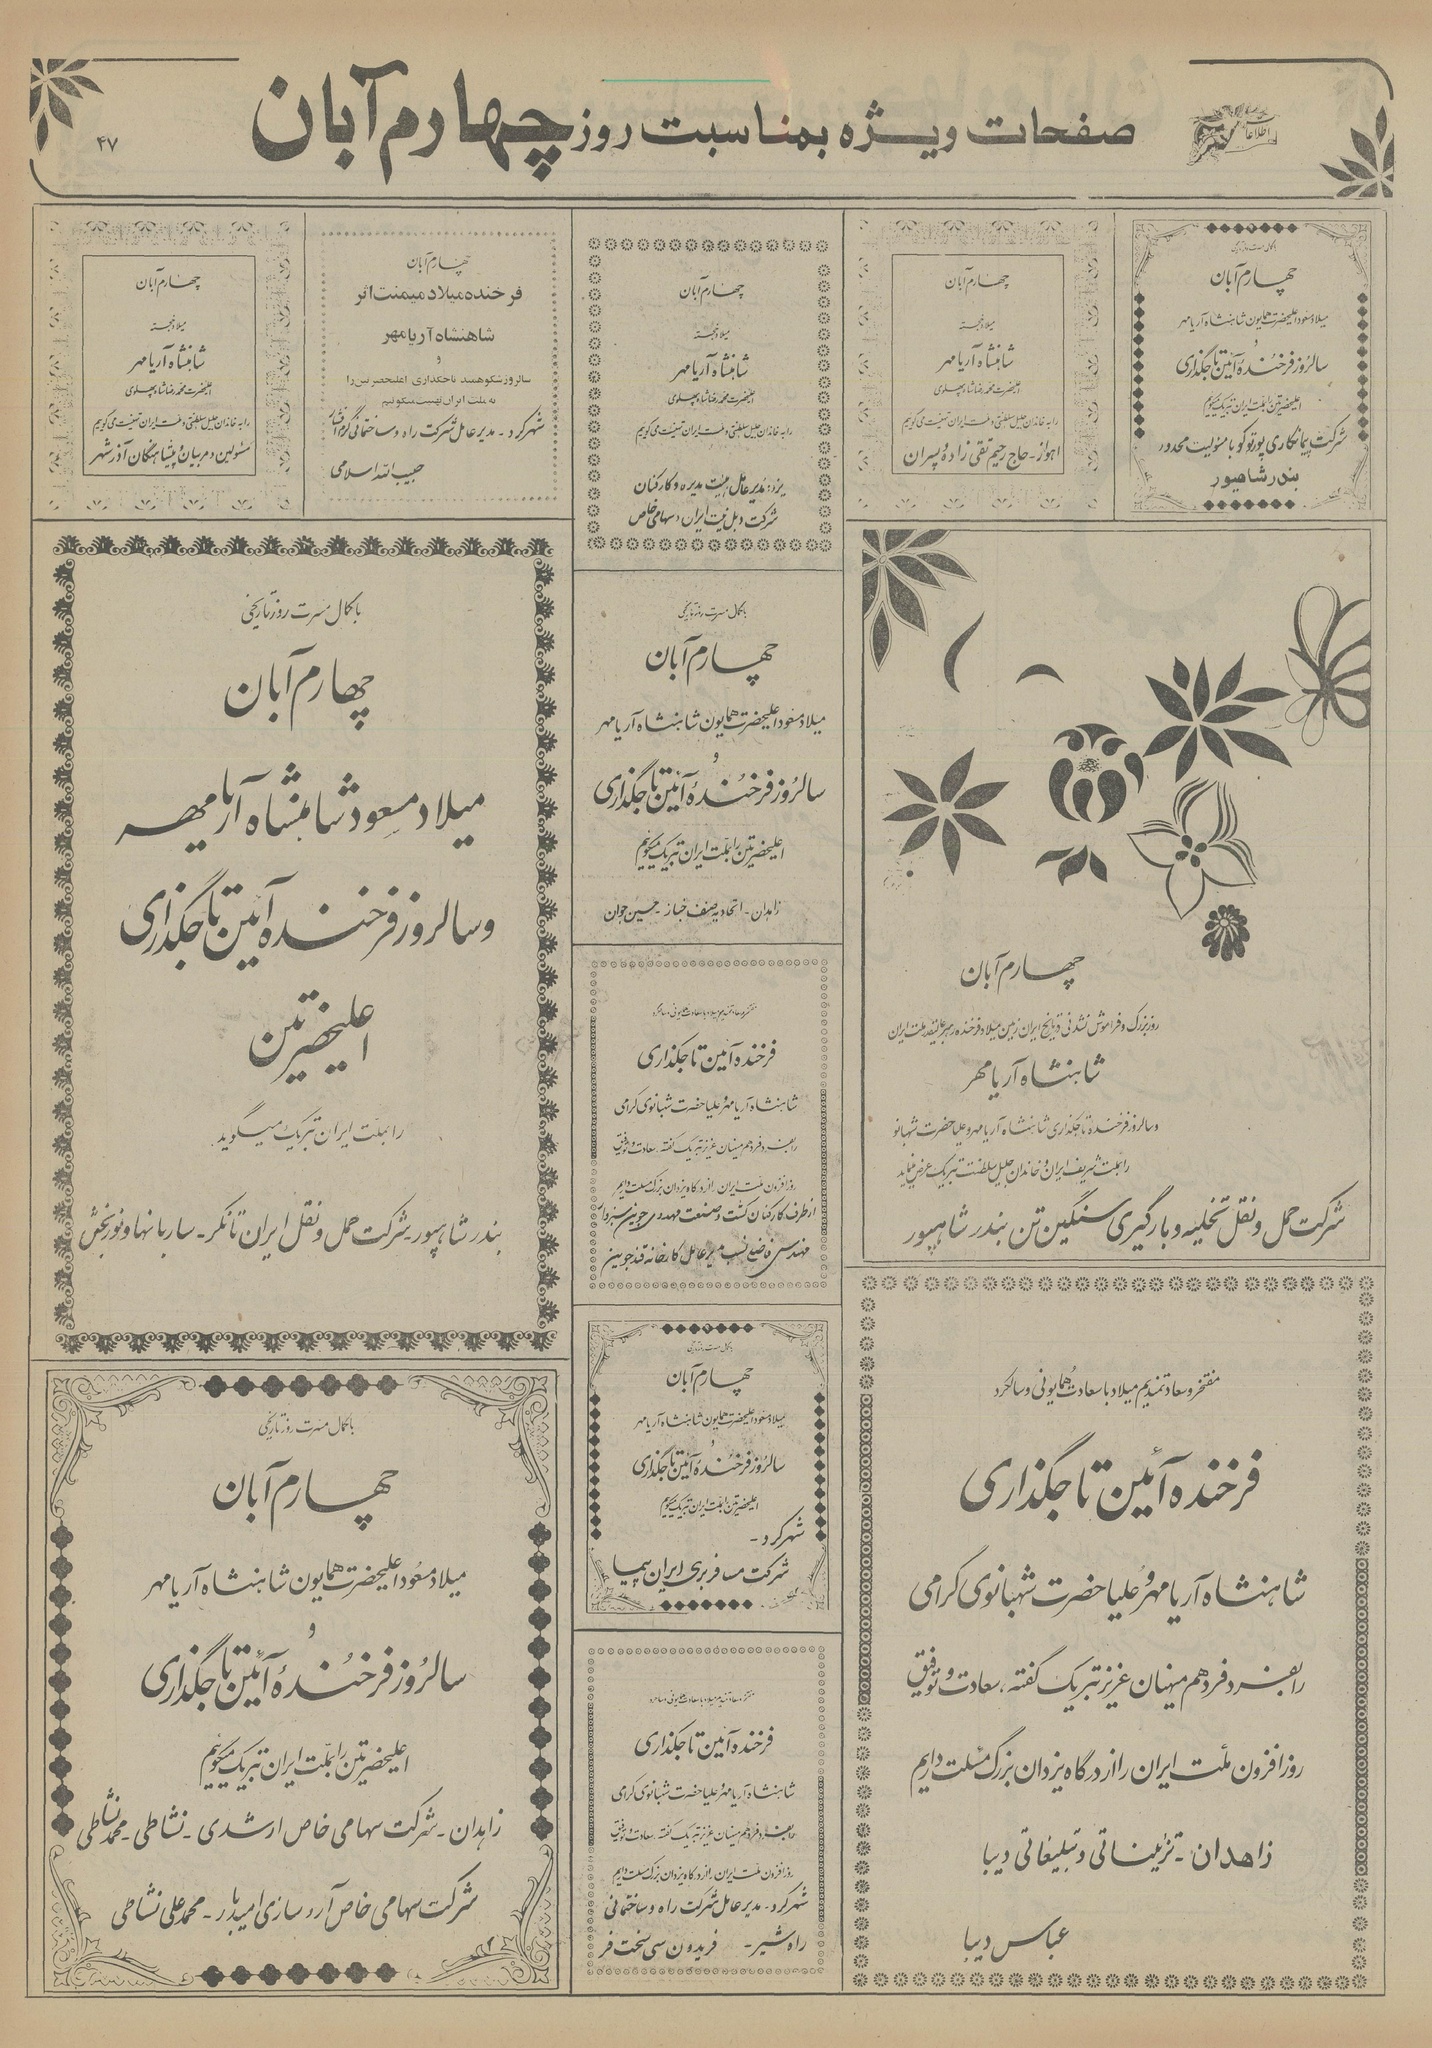 اطلاعات
صفحات ویژه بمناسبت روز چهارم آبان
۴۷
چهارم آبان
میلاد مسعود اعلیحضرت همایون شاهنشاه آریامهر
و
سالروز فرخندهٔ آئین تاجگذاری
اعلیحضرتین را بملت ایران تبریک میگوئیم
شرکت پیمانکاری پورتوکو با مسئولیت محدود
بندر شاهپور
چهارم آبان
میلاد خجسته
شاهنشاه آریامهر
اعلیحضرت محمدرضا شاه پهلوی
را به خاندان جلیل سلطنتی و ملت ایران تهنیت می‌گوییم
اهواز - حاج رحیم تقی زاده و پسران
چهارم آبان
میلاد خجسته
شاهنشاه آریامهر
اعلیحضرت محمدرضا شاه پهلوی
را به خاندان جلیل سلطنتی و ملت ایران تهنیت می‌گوییم
یزد: مدیر عامل هیئت مدیره و کارکنان
شرکت دبل نیت ایران «سهامی خاص»
چهارم آبان
فرخنده میلاد میمنت اثر
شاهنشاه آریامهر
و
سالروز شکوهمند تاجگذاری اعلیحضرتین را
به ملت ایران تهنیت میگوئیم
شهرکرد - مدیر عامل شرکت راه و ساختمانی
حبیب الله اسلامی
چهارم آبان
میلاد خجسته
شاهنشاه آریامهر
اعلیحضرت محمدرضا شاه پهلوی
را به خاندان جلیل سلطنتی و ملت ایران تهنیت می‌گوییم
مسئولین و مربیان و پیشاهنگان آذرشهر
چهارم آبان
روز بزرگ و فراموش نشدنی در تاریخ ایران زمین میلاد فرخنده رهبر عالیقدر ملت ایران
شاهنشاه آریامهر
و سالروز فرخندهٔ تاجگذاری شاهنشاه آریامهر و علیاحضرت شهبانو
را بملت شریف ایران و خاندان جلیل سلطنت تبریک عرض مینماید
شرکت حمل و نقل تخلیه و بارگیری سنگین تن بندر شاهپور
با کمال مسرت روز تاریخی
چهارم آبان
میلاد مسعود اعلیحضرت همایون شاهنشاه آریامهر
و
سالروز فرخندهٔ آئین تاجگذاری
اعلیحضرتین را بملت ایران تبریک میگوئیم
زاهدان - اتحادیه صنف خباز - حسین جوان
با کمال مسرت روز تاریخی
چهارم آبان
میلاد مسعود شاهنشاه آریامهر
و سالروز فرخنده آئین تاجگذاری
اعلیحضرتین
را بملت ایران تبریک میگوید
بندر شاهپور - شرکت حمل و نقل ایران تانکر - ساربانها و نوربخش
مفتخر و سعادتمندیم میلاد با سعادت همایونی و سالگرد
فرخنده آئین تاجگذاری
شاهنشاه آریامهر و علیاحضرت شهبانوی گرامی
را بفرد فرد هم میهنان عزیز تبریک گفته، سعادت و توفیق
روز افزون ملت ایران را از درگاه یزدان بزرگ مسئلت داریم
از طرف کارکنان کشت و صنعت مهدوی جوین سبزوار
مهندس نسب مدیر عامل کارخانه قند جوین
با کمال مسرت روز تاریخی
چهارم آبان
میلاد مسعود اعلیحضرت همایون شاهنشاه آریامهر
و
سالروز فرخندهٔ آئین تاجگذاری
اعلیحضرتین را بملت ایران تبریک میگوئیم
شهرکرد -
شرکت مسافربری ایران پیما
مفتخر و سعادتمندیم میلاد با سعادت همایونی و سالگرد
فرخنده آئین تاجگذاری
شاهنشاه آریامهر و علیاحضرت شهبانوی گرامی
را بفرد فرد هم میهنان عزیز تبریک گفته، سعادت و توفیق
روز افزون ملت ایران را از درگاه یزدان بزرگ مسئلت داریم
شهرکرد - مدیر عامل شرکت راه و ساختمانی
راه شیر - فریدون سی سخت فر
مفتخر و سعادتمندیم میلاد با سعادت همایونی و سالگرد
فرخنده آئین تاجگذاری
شاهنشاه آریامهر و علیاحضرت شهبانوی گرامی
را بفرد فرد هم میهنان عزیز تبریک گفته، سعادت و توفیق
روز افزون ملت ایران را از درگاه یزدان بزرگ مسئلت داریم
زاهدان - تزئیناتی و تبلیغاتی دیبا
عباس دیبا
با کمال مسرت روز تاریخی
چهارم آبان
میلاد مسعود اعلیحضرت همایون شاهنشاه آریامهر
و
سالروز فرخندهٔ آئین تاجگذاری
اعلیحضرتین را بملت ایران تبریک میگوئیم
زاهدان - شرکت سهامی خاص ارشدی - نشاطی - محمد نشاطی
شرکت سهامی خاص آرد سازی امیدبار - محمد علی نشاطی